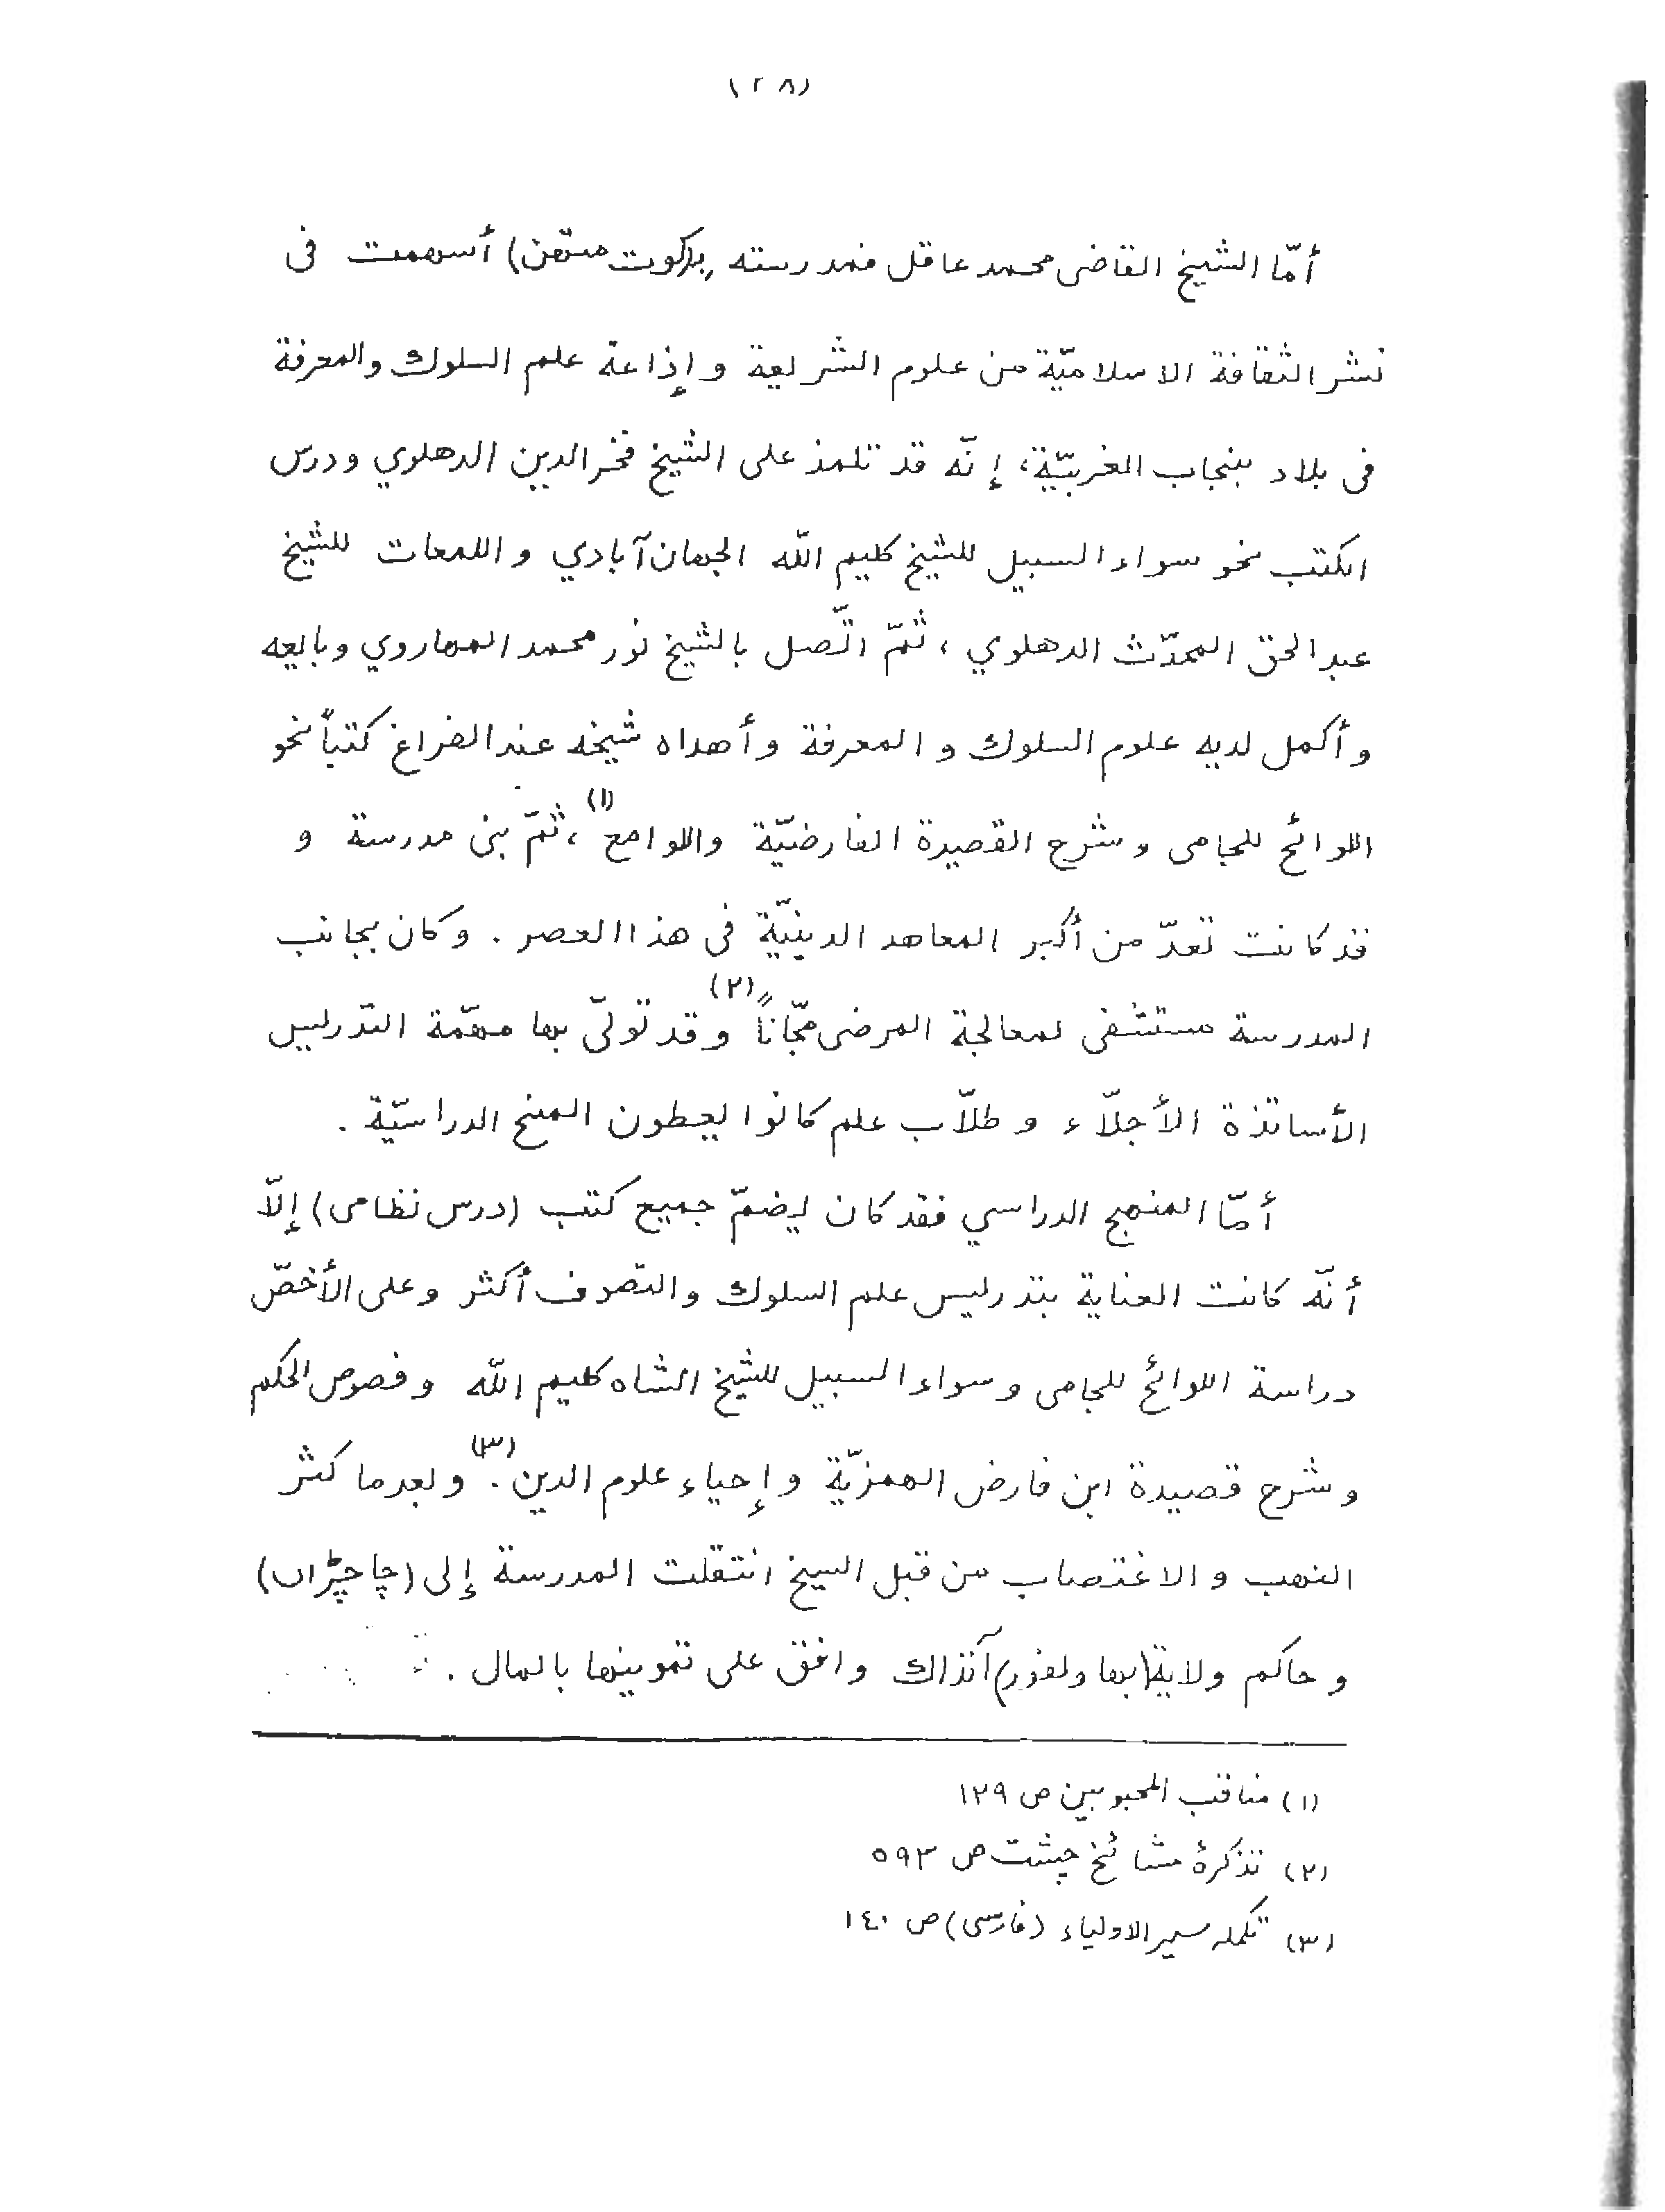 (٢٨)
أمّا الشيخ القاضى محمد عاقل فمدرسته بـ(كوت متهن) أسهمت فى
نشر الثقافة الاسلاميّة من علوم الشريعة وإذاعة علم السلوك والمعرفة
فى بلاد بنجاب الغربيّة، إنّه قد تلمذ على الشيخ فخر الدين الدهلوي ودرس
الكتب نحو سواء السبيل للشيخ كليم الله الجهان آبادي واللمعات للشيخ
عبد الحق المحدّث الدهلوي، ثمّ اتّصل بالشيخ نور محمد المهاروي وبايعه
وأكمل لديه علوم السلوك والمعرفة وأهداه شيخه عند الفراغ كتباً نحو
اللوائح للجامى وشرح القصيدة الفارضيّة واللوامع(١)، ثمّ بنى مدرسة و
قد كانت تعدّ من أكبر المعاهد الدينيّة فى هذا العصر. وكان بجانب
المدرسة مستشفى لمعالجة المرضى مجّاناً(٢) وقد تولّى بها مهمّة التدريس
الأساتذة الأجلّاء وطلّاب علم كانوا يعطون المنح الدراسيّة.
أمّا المنهج الدراسي فقد كان يضمّ جميع كتب (درس نظامى) إلّا
أنّه كانت العناية بتدريس علم السلوك والتصوف أكثر وعلى الأخصّ
دراسة اللوائح للجامى وسواء السبيل للشيخ الشاه كليم الله وفصوص الحكم
وشرح قصيدة ابن فارض الهمزيّة وإحياء علوم الدين(٣). وبعد ما كثر
النهب والاغتصاب من قبل السيخ انتقلت المدرسة إلى (چاچڑاں)
وحاكم ولاية (بهاولفور) آنذاك وافق على تموينها بالمال.
(١) مناقب المحبوبين ص ١٢٩
(٢) تذكرۂ مشائخ چشت ص ٥٩٣
(٣) تكمله سير الاولياء (فارسى) ص ١٤٠